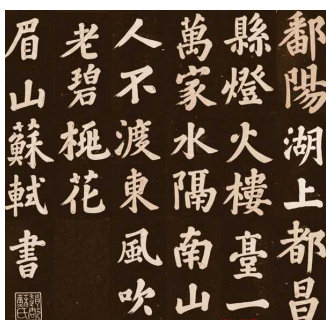 鄱陽湖上都昌
縣燈火樓臺一
萬家水隔南山
人不渡東風吹
老碧桃花
眉山蘇軾書